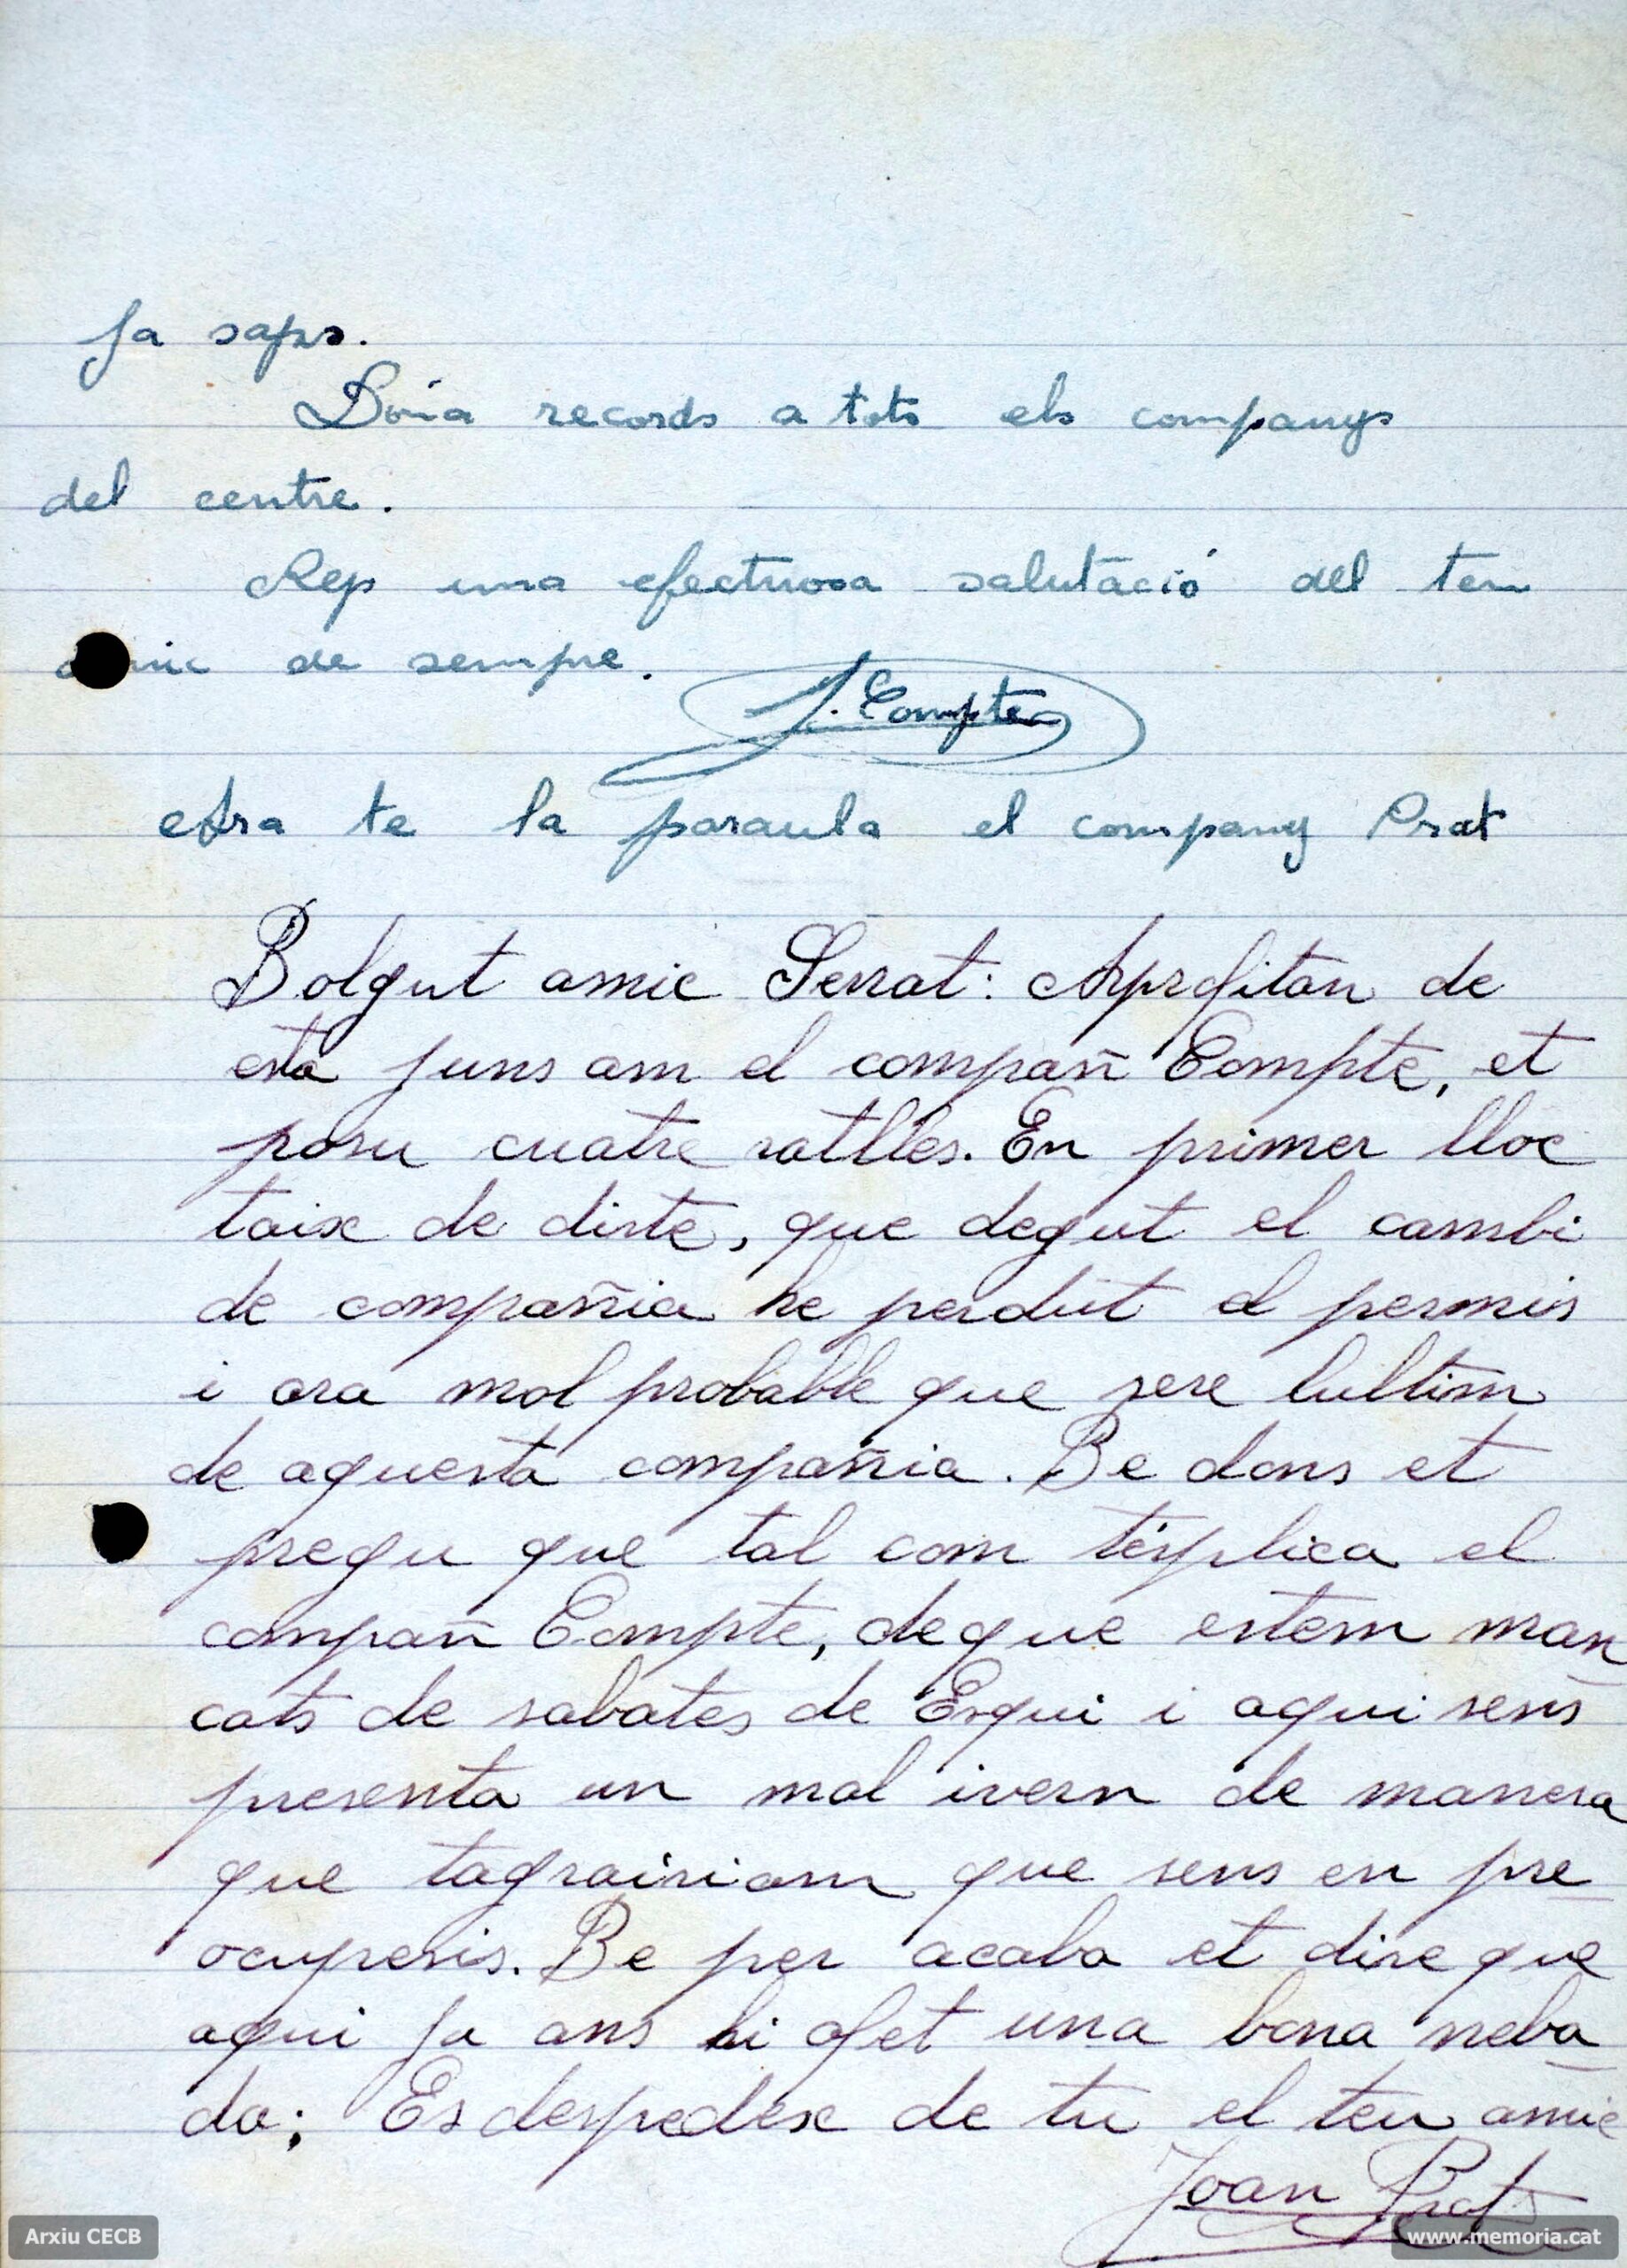 Ja saps.
Dóna records a tots els companys
del centre.
Rep una efectuosa salutació del teu
amic de sempre.
J. Compte
Ara te la paraula el company Prat
Bolgut amic Serrat: Aprofitan de
esta juns am el compañ Compte, et
posu cuatre ratlles. En primer lloc
taix de dirte, que degut el cambi
de compañia he perdut el permis
i ara mol probable que sere lultim
de aquesta compañia. Be dons et
pregu que tal com t'esplica el
compañ Compte, de que estem man
cats de sabates de Esqui i aqui sens
presenta un mal ivern de manera
que tagrairiam que sens en pre
ocuperis. Be per acaba et dire que
aqui ja ans hi afet una bona neba
da; Es despedex de tu el teu amic
Joan Prats
Arxiu CECB
www.memoria.cat